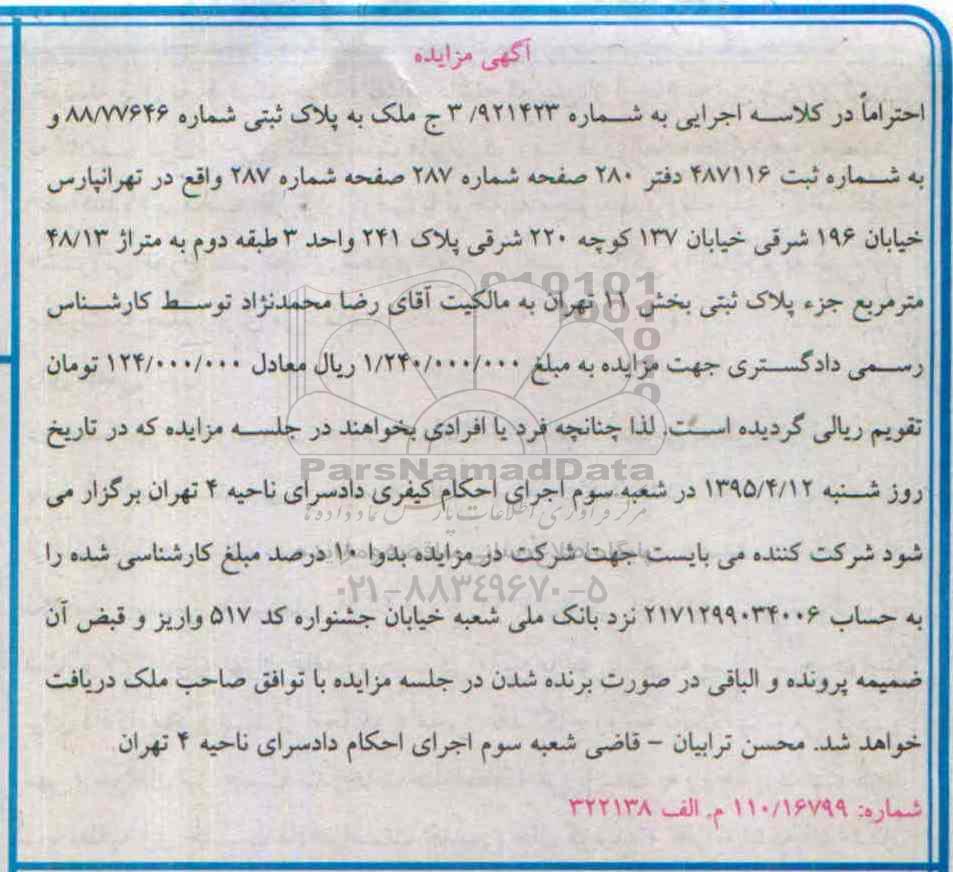 آگهی مزایده
احتراماً در کلاسه اجرایی به شماره ۳/۹۲۱۴۲۳ ج ملک به پلاک ثبتی شماره ۸۸/۷۷۶۴۶ و
به شماره ثبت ۴۸۷۱۱۶ دفتر ۲۸۰ صفحه شماره ۲۸۷ صفحه شماره ۲۸۷ واقع در تهرانپارس
خیابان ۱۹۶ شرقی خیابان ۱۳۷ کوچه ۲۲۰ شرقی پلاک ۲۴۱ واحد ۳ طبقه دوم به متراژ ۴۸/۱۳
مترمربع جزء پلاک ثبتی بخش ۱۱ تهران به مالکیت آقای رضا محمدنژاد توسط کارشناس
رسمی دادگستری جهت مزایده به مبلغ ۱/۲۴۰/۰۰۰/۰۰۰ ریال معادل ۱۲۴/۰۰۰/۰۰۰ تومان
تقویم ریالی گردیده است. لذا چنانچه فرد یا افرادی بخواهند در جلسه مزایده که در تاریخ
ParsNamadData
روز شنبه ۱۳۹۵/۴/۱۲ در شعبه سوم اجرای احکام کیفری دادسرای ناحیه ۴ تهران برگزار می
مرکز فرآوری اطلاعات پارس نماد داده ها
شود شرکت کننده می بایست جهت شرکت در مزایده بدوا ۱۰ درصد مبلغ کارشناسی شده را
۰۲۱-۸۸۳۴۹۶۷۰-۵
به حساب ۲۱۷۱۲۹۹۰۳۴۰۰۶ نزد بانک ملی شعبه خیابان جشنواره کد ۵۱۷ واریز و قبض آن
ضمیمه پرونده و الباقی در صورت برنده شدن در جلسه مزایده با توافق صاحب ملک دریافت
خواهد شد. محسن ترابیان - قاضی شعبه سوم اجرای احکام دادسرای ناحیه ۴ تهران
شماره: ۱۱۰/۱۶۷۹۹ م. الف ۳۲۲۱۳۸